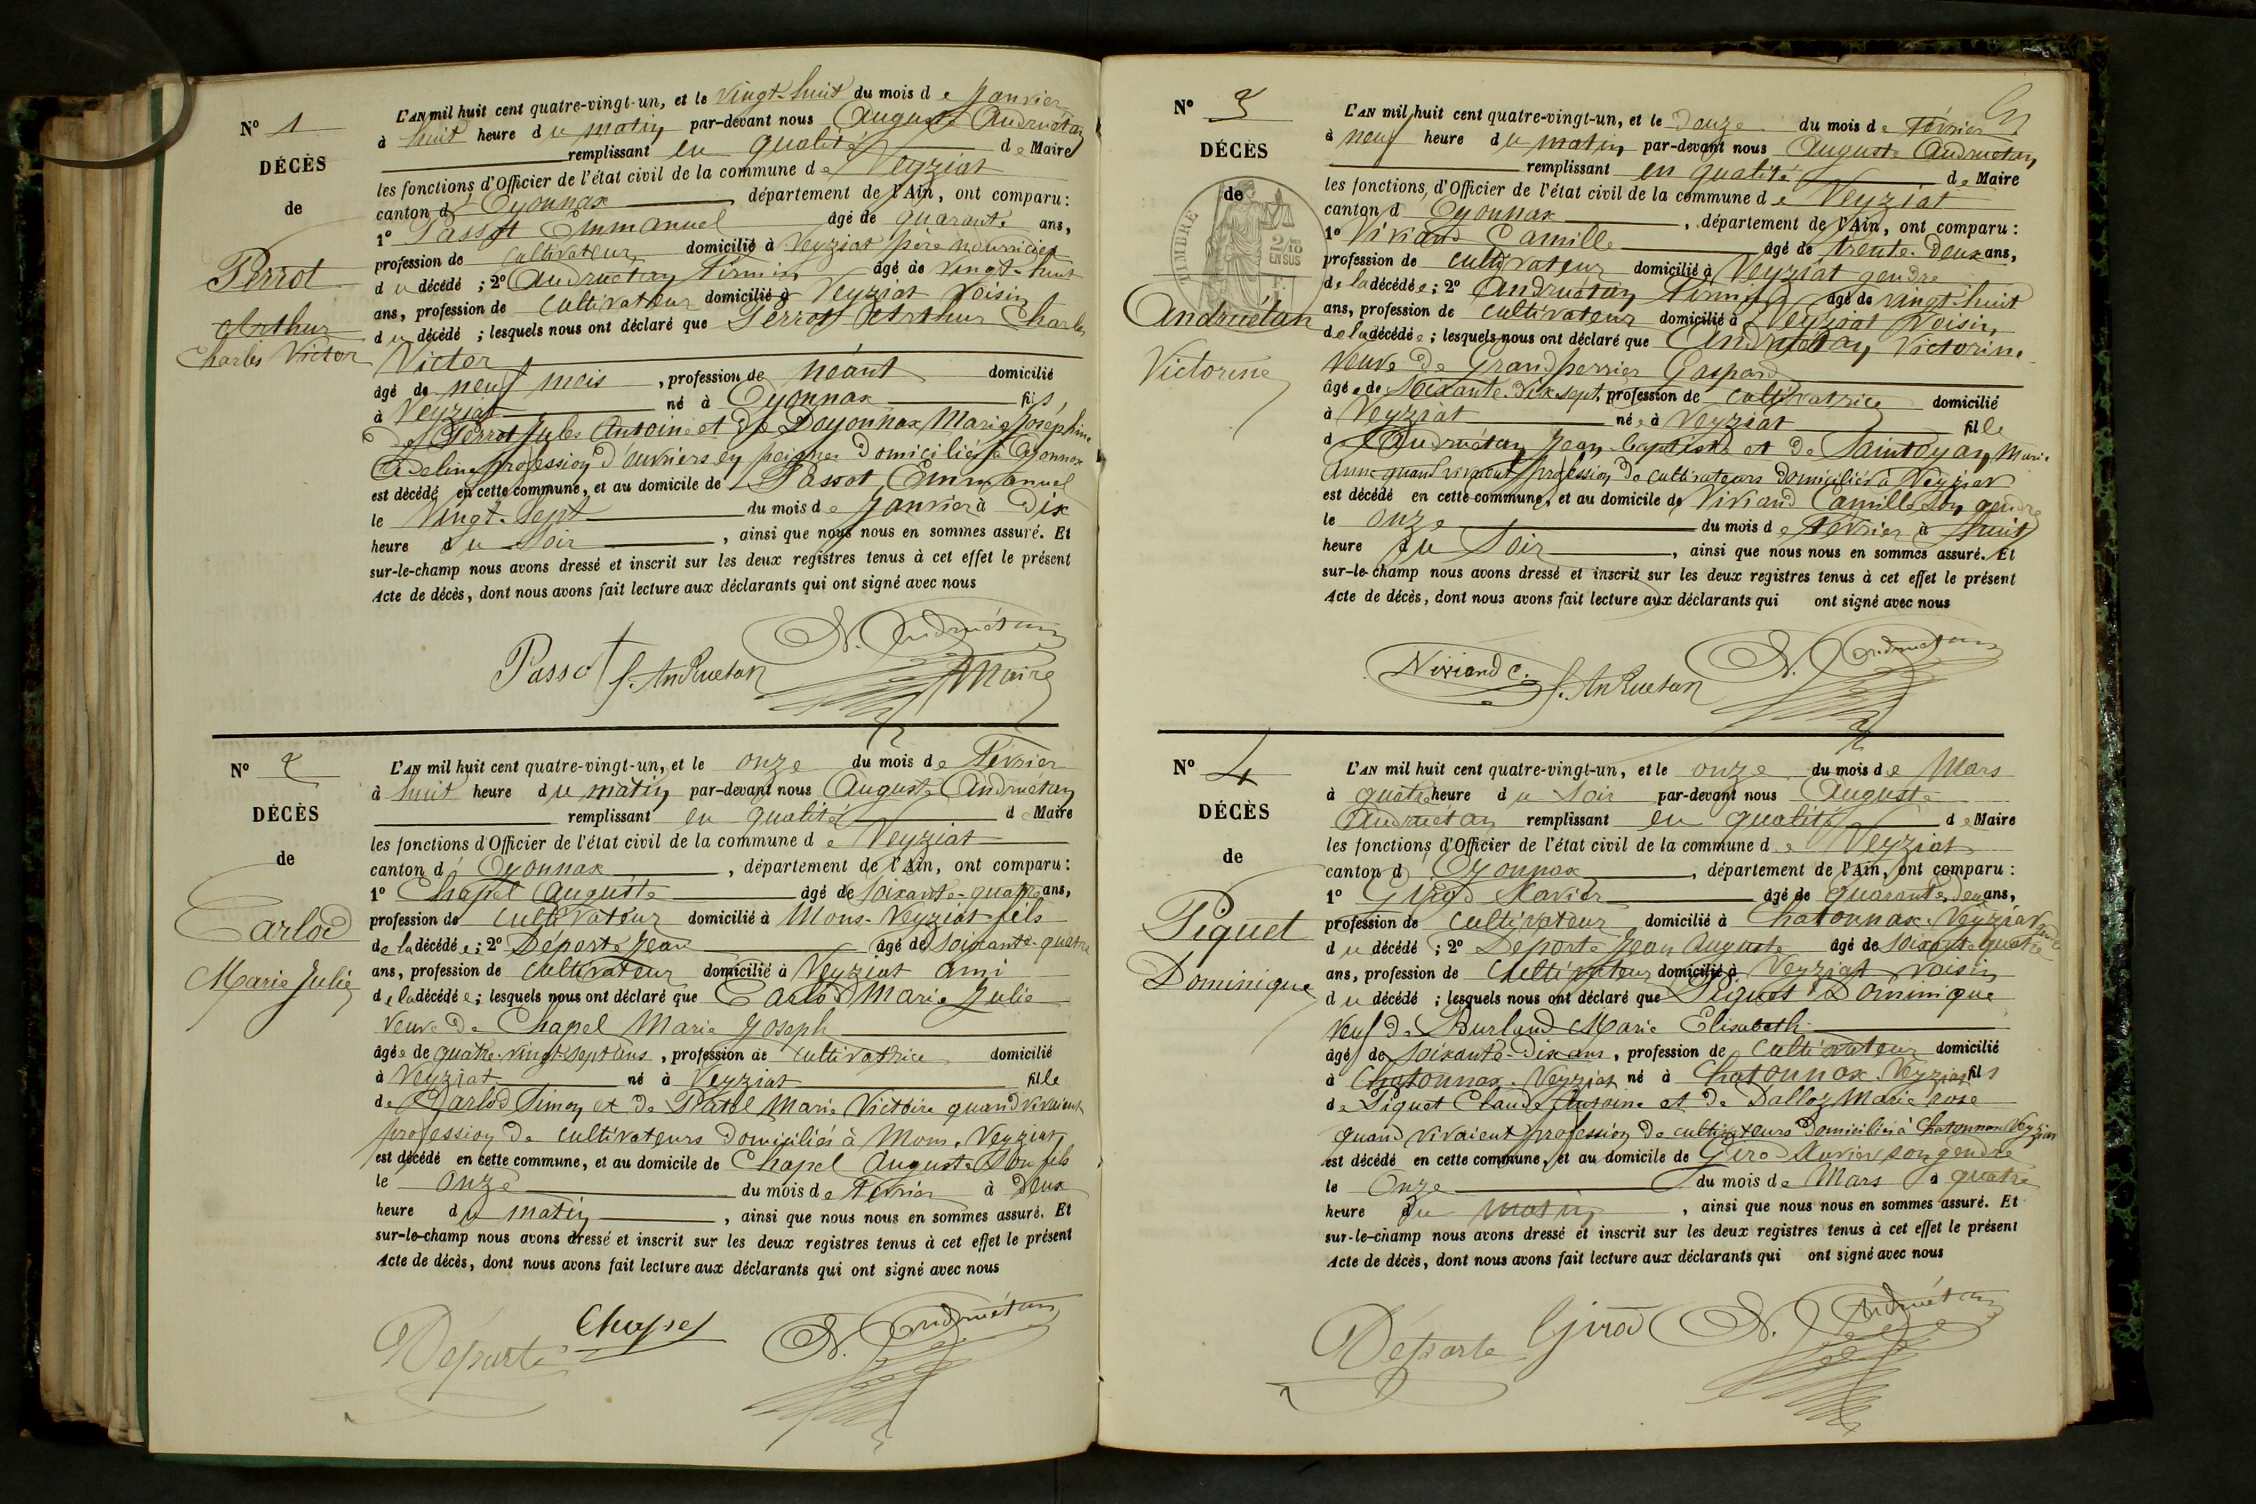 N° 1
DÉCÈS
de
Perrot
Arthur
Charles Victor
L'AN mil huit cent quatre-vingt-un, et le vingt-huit du mois de Janvier
à huit heure du matin par-devant nous Auguste Andruétan
remplissant en qualité de Maire
les fonctions d'Officier de l'état civil de la commune de Veyziat
canton d'Oyonnax, département de l'Ain, ont comparu:
1° Passot Emmanuel âgé de quarante ans,
profession de cultivateur domicilié à Veyziat père nourricier
du décédé ; 2° Andruétan Firmin âgé de vingt-huit
ans, profession de cultivateur domicilié à Veyziat voisin
du décédé ; lesquels nous ont déclaré que Perrot Arthur Charles
Victor
âgé de neuf mois, profession de néant domicilié
à Veyziat né à Oyonnax fils
de Perrot Jules Antoine et de Doyonnax Marie Joséphine
Adeline profession d'ouvriers en peignes domiciliés à Oyonnax
est décédé en cette commune, et au domicile de Passot Emmanuel
le vingt-sept du mois de Janvier à dix
heure du soir, ainsi que nous nous en sommes assuré. Et
sur-le-champ nous avons dressé et inscrit sur les deux registres tenus à cet effet le présent
Acte de décès, dont nous avons fait lecture aux déclarants qui ont signé avec nous
Passot f. Andruetan N. Andruétan
Maire
N° 2
DÉCÈS
de
Carlod
Marie Julie
L'AN mil huit cent quatre-vingt-un, et le onze du mois de Février
à huit heure du matin par-devant nous Auguste Andruétan
remplissant en qualité d Maire
les fonctions d'Officier de l'état civil de la commune de Veyziat
canton d'Oyonnax, département de l'Ain, ont comparu:
1° Chapel Auguste âgé de soixante-quatre ans,
profession de cultivateur domicilié à Mons-Veyziat fils
de la décédée ; 2° Déporte Jean âgé de soixante-quatre
ans, profession de cultivateur domicilié à Veyziat ami
de la décédée ; lesquels nous ont déclaré que Carlod Marie Julie
veuve de Chapel Marie Joseph
âgée de quatre-vingt-sept ans, profession de cultivatrice domicilié
à Veyziat né à Veyziat fille
de Carlod Simon et de Ratel Marie Victoire quand vivaient
profession de cultivateurs domiciliés à Mons-Veyziat
est décédé en cette commune, et au domicile de Chapel Auguste son fils
le onze du mois de Février à deux
heure du matin, ainsi que nous nous en sommes assuré. Et
sur-le-champ nous avons dressé et inscrit sur les deux registres tenus à cet effet le présent
Acte de décès, dont nous avons fait lecture aux déclarants qui ont signé avec nous
Déporte Chapel N. Andruétan
N° 3
DÉCÈS
de
TIMBRE
2/10
EN SUS
Andruétan
Victorine
L'AN mil huit cent quatre-vingt-un, et le douze du mois de Février
à neuf heure du matin par-devant nous Auguste Andruétan
remplissant en qualité de Maire
les fonctions d'Officier de l'état civil de la commune de Veyziat
canton d Oyonnax, département de l'Ain, ont comparu:
1° Viviand Camille âgé de trente-deux ans,
profession de cultivateur domicilié à Veyziat gendre
de la décédée ; 2° Andruétan Firmin âgé de vingt-huit
ans, profession de cultivateur domicilié à Veyziat voisin
de la décédée ; lesquels nous ont déclaré que Andruétan Victorine
veuve de Grandperrier Gaspard
âgée de soixante-dix-sept, profession de cultivatrice domicilié
à Veyziat née à Veyziat fille
de Andruétan Jean-baptiste et de Saintoyan Marie
Anne quand vivaient profession de cultivateurs domiciliés à Veyziat
est décédé en cette commune, et au domicile de Viviand Camille son gendre
le onze du mois de Février à huit
heure du soir, ainsi que nous nous en sommes assuré. Et
sur-le-champ nous avons dressé et inscrit sur les deux registres tenus à cet effet le présent
Acte de décès, dont nous avons fait lecture aux déclarants qui ont signé avec nous
Viviand C. f. Andruetan N. Andruétan
N° 4
DÉCÈS
de
Piquet
Dominique
L'AN mil huit cent quatre-vingt-un, et le onze du mois de Mars
à quatre heure du soir par-devant nous Auguste
Andruétan remplissant en qualité de Maire
les fonctions d'Officier de l'état civil de la commune de Veyziat
canton d'Oyonnax, département de l'Ain, ont comparu:
1° Girod Xavier âgé de quarante deux ans,
profession de cultivateur domicilié à Chatonnax-Veyziat gendre
du décédé ; 2° Déporte Jean Auguste âgé de soixante quatre
ans, profession de cultivateur domicilié à Veyziat voisin
du décédé ; lesquels nous ont déclaré que Piquet Dominique
veuf de Burlund Marie Elisabeth
âgé de soixante-dix ans, profession de cultivateur domicilié
à Chatonnax-Veyziat né à Chatonnax-Veyziat fils
de Piquet Claude Antoine et de Dalloz Marie rose
quand vivaient profession de cultivateurs domiciliés à Chatonnax Veyziat
est décédé en cette commune, et au domicile de Girod Xavier son gendre
le onze du mois de Mars à quatre
heure du matin, ainsi que nous nous en sommes assuré. Et
sur-le-champ nous avons dressé et inscrit sur les deux registres tenus à cet effet le présent
Acte de décès, dont nous avons fait lecture aux déclarants qui ont signé avec nous
Déporte Girod N. Andruétan